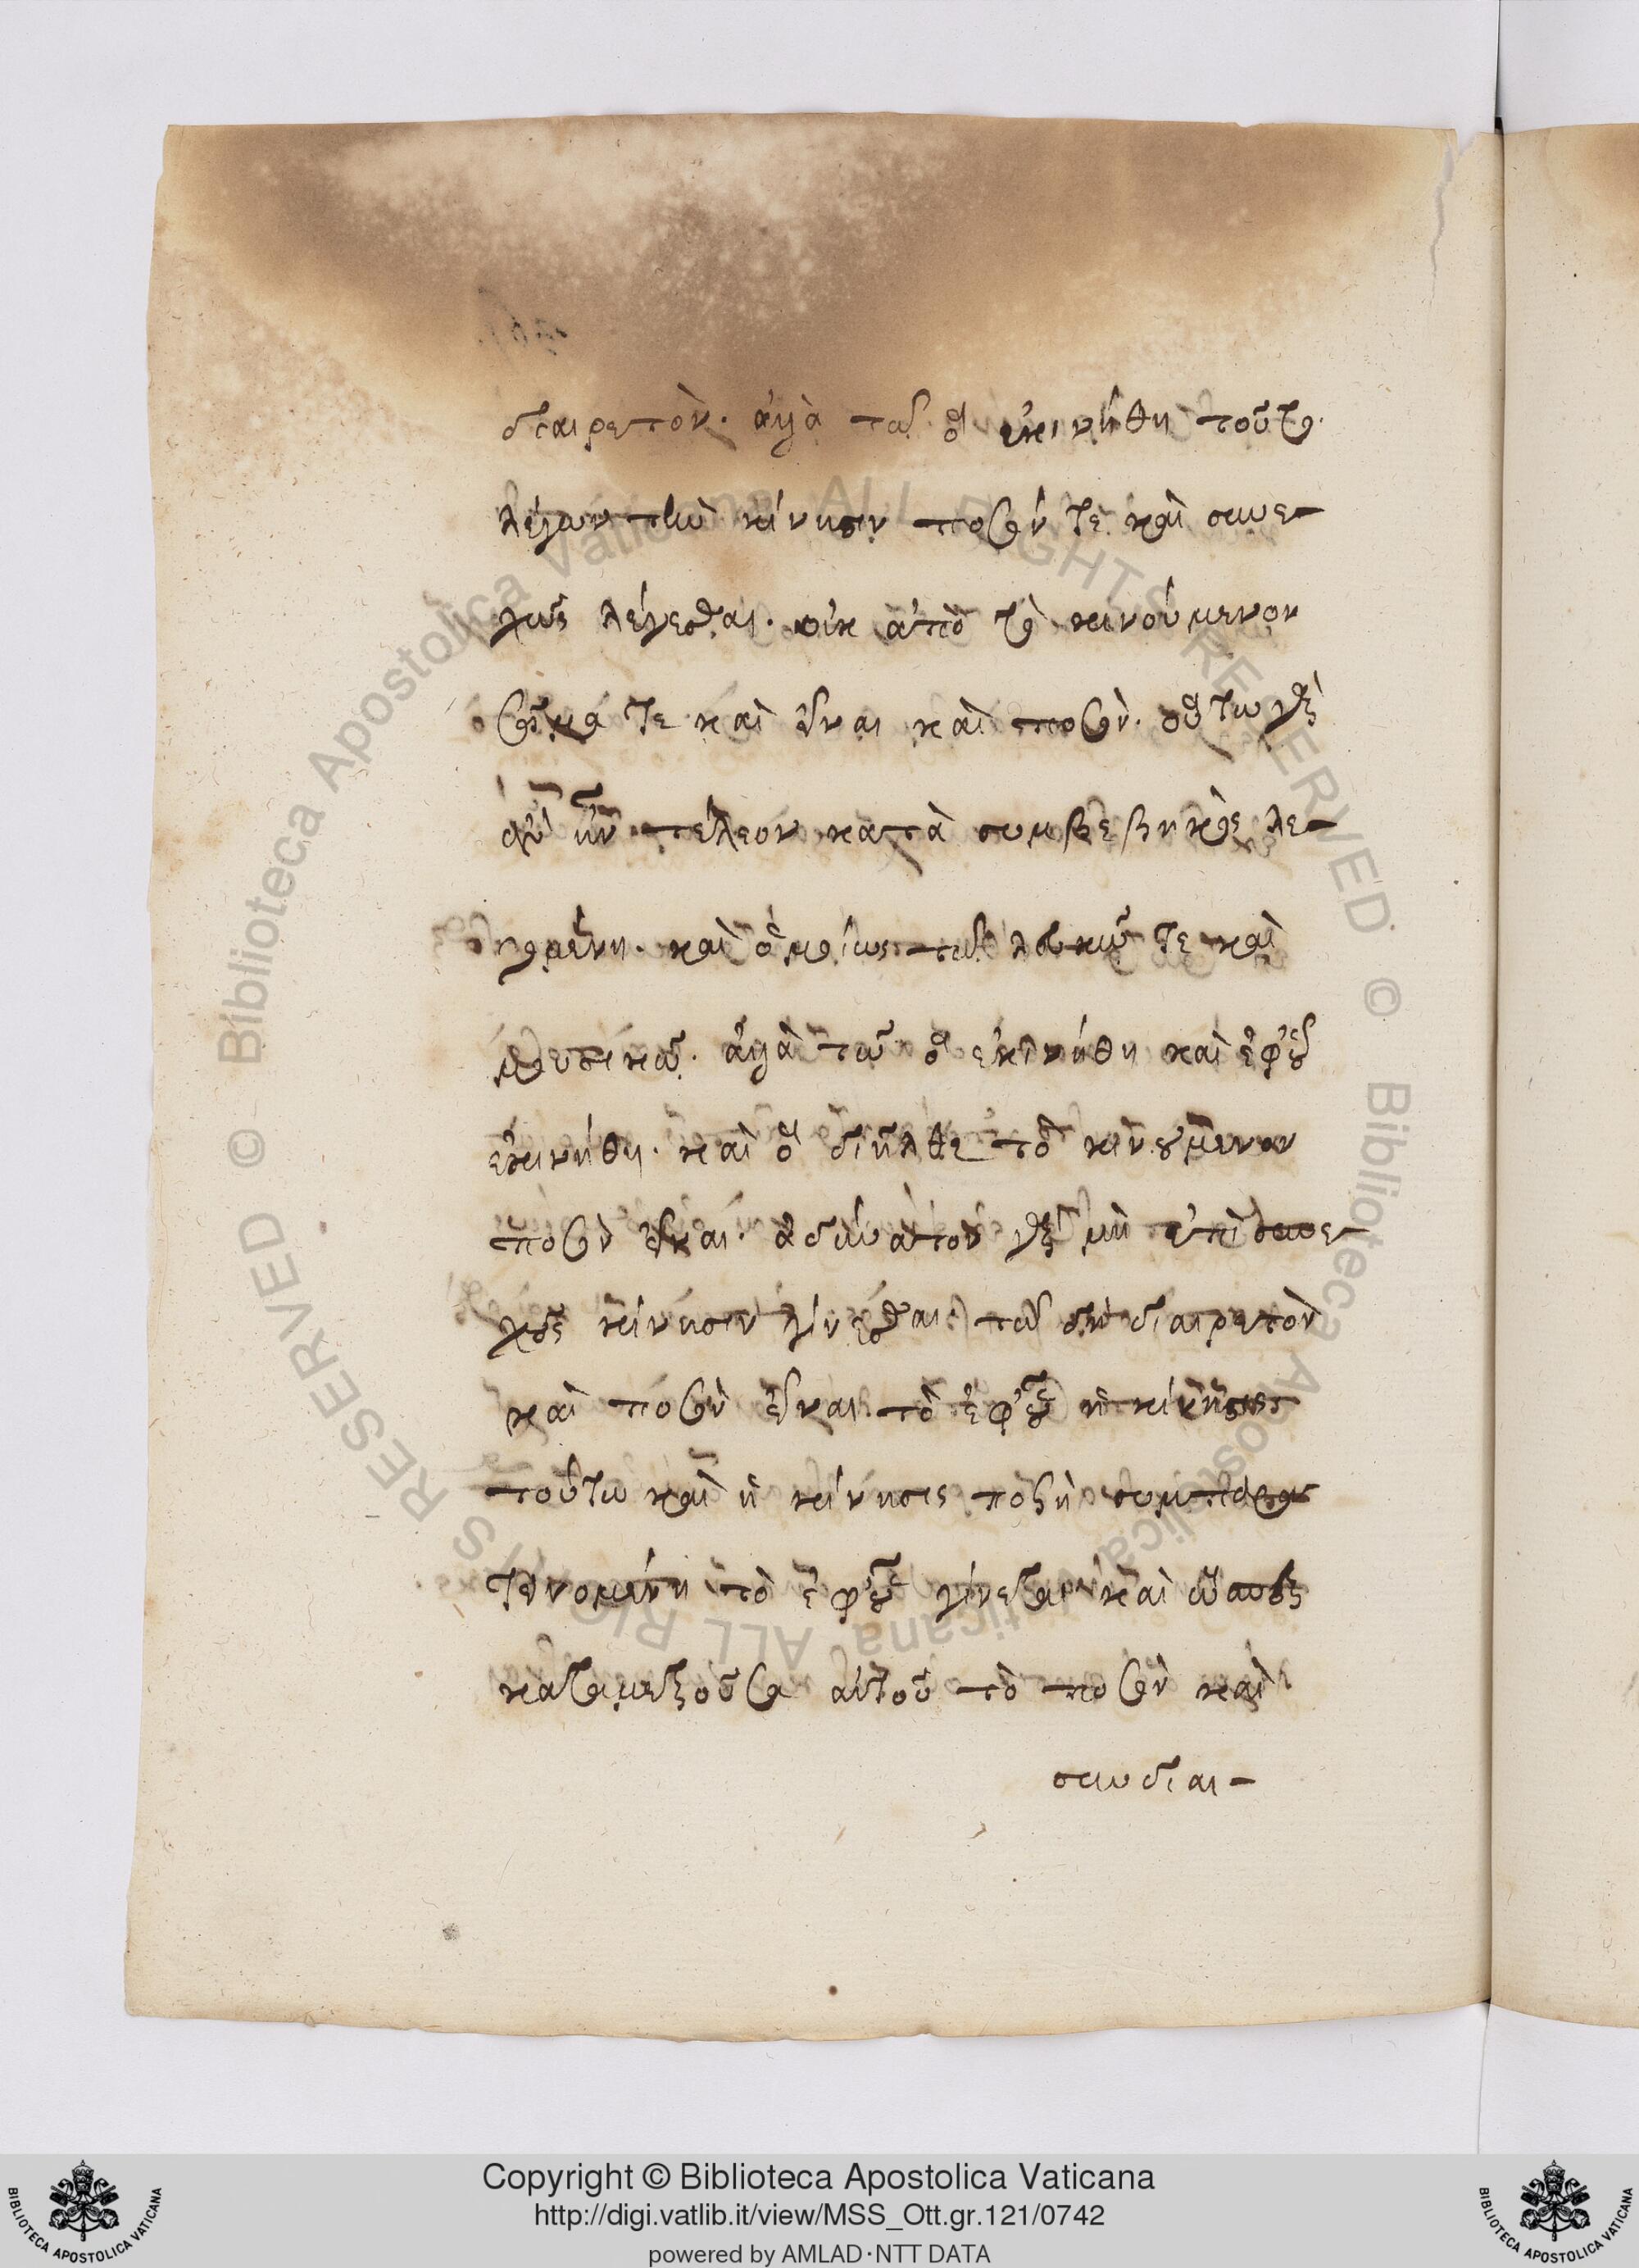 διαιρετὸν. ἀλλὰ τῶ ὃ ἐκινήθη τοῦτο.
λέγων τὴν κίνησιν ποσόν τε καὶ συνε-
χῶς λέγεσθαι. οὐκ ἀπὸ τὸ κινούμενον
σῶμά τε καὶ εἶναι καὶ ποσὸν. οὕτω γὰρ
ἂν ἦν τέλεον κατὰ συμβεβηκὸς λε-
γομένη. καὶ ὁμοίως τῶ λευκῶ τε καὶ
μουσικῶ. ἀλλὰ τῶ ὃ ἐκινήθη καὶ ἐφ' οὗ
ἐκινήθη. καὶ ὃ διῆλθε τὸ κινούμενον
ποσὸν εἶναι. ἀδύνατον γὰρ μὴ ἐπὶ συνε-
χοῦς κίνησιν γίνεσθαι. τῶ δὴ διαιρετὸν
καὶ ποσὸν εἶναι τὸ ἐφ' οὗ ἡ κίνησις
τούτω καὶ ἡ κίνησις ποσὴ συμπαρα
τεινομένη τὸ ἐφ' οὗ γίνεται καὶ
καταμετροῦσα αὐτοῦ τὸ ποσὸν καὶ
συνδιαι-
Copyright © Biblioteca Apostolica Vaticana
http://digi.vatlib.it/view/MSS_Ott.gr.121/0742
powered by AMLAD·NTT DATA
BIBLIOTECA APOSTOLICA VATICANA
BIBLIOTECA APOSTOLICA VATICANA
© Biblioteca Apostolica Vaticana ALL RIGHTS RESERVED
© Biblioteca Apostolica Vaticana ALL RIGHTS RESERVED